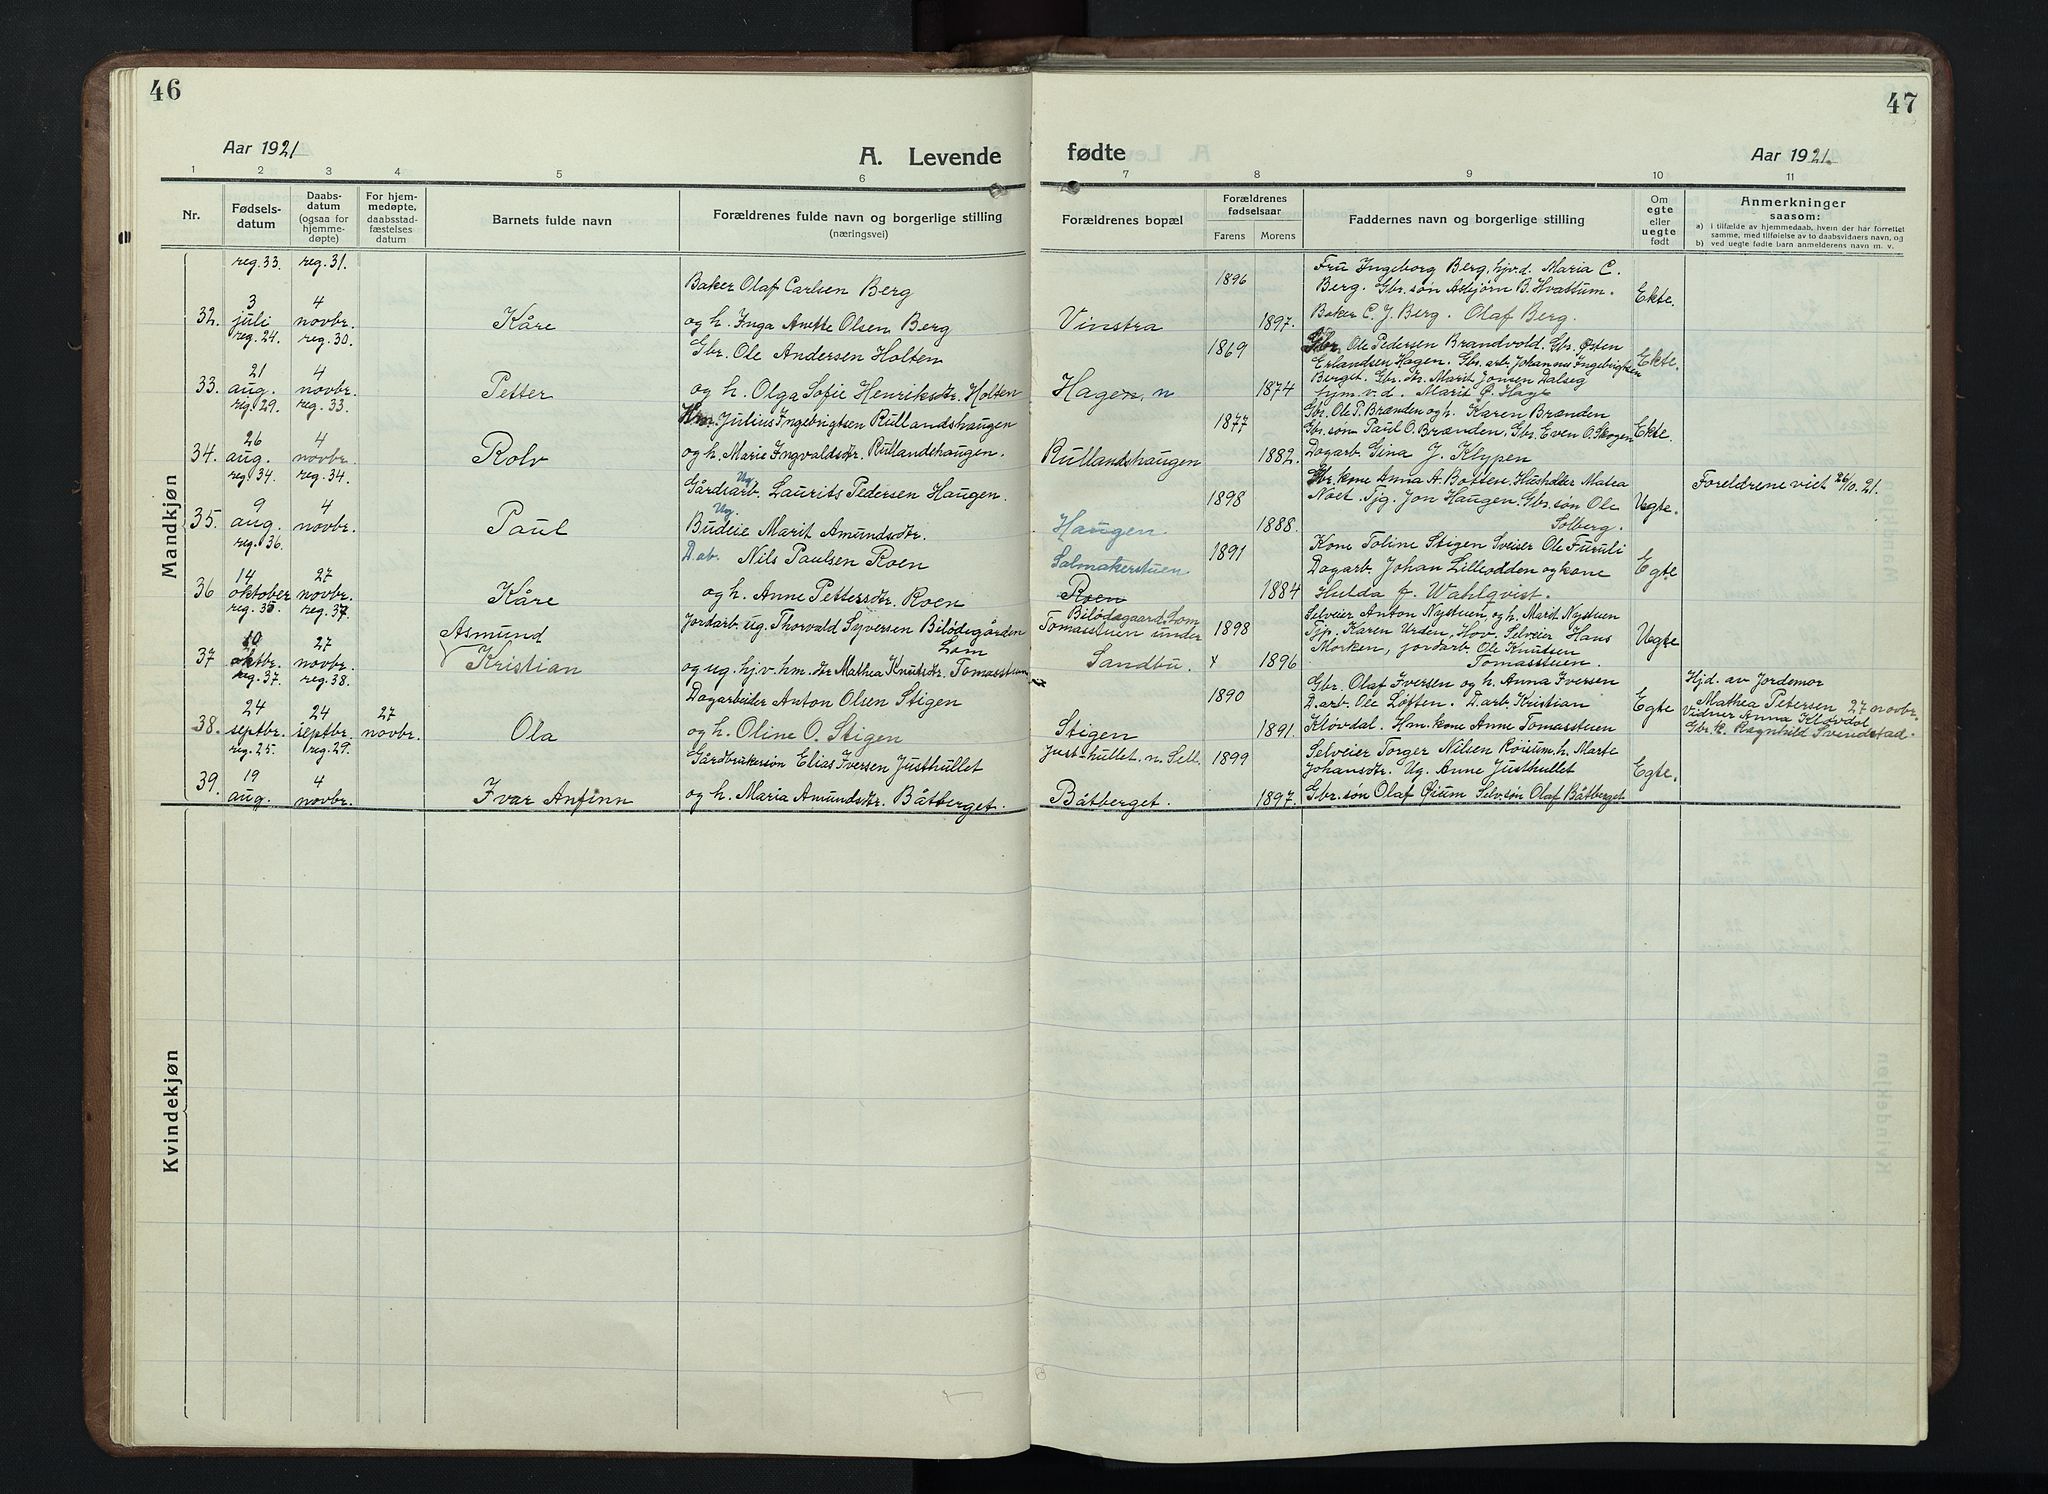 46
Aar 1921
A. Levende
1 2 3 4 5 6
Nr.
Fødsels-
datum
Daabs-
datum
(ogsaa for
hjemme-
døpte)
For hjem-
medøpte,
daabsstad-
fæstelses
datum
Barnets fulde navn
Forældrenes fulde navn og borgerlige stilling
(næringsvei)
Mandkjøn
reg. 33. reg. 31.
Baker Olaf Carlsen Berg
3 4
32. juli novbr. Kåre og h. Inga Anette Olsen Berg
reg. 24. reg. 30.
Gbr. Ole Andersen Holten
21 4
33. aug. novbr. Petter og h. Olga Sofie Henriksdtr. Holten
reg. 29. reg. 33.
Hm. Julius Ingebrigtsen Rullandshaugen
26 4
34. aug. novbr. Rolv og h. Marie Ingvaldsdtr. Rullandshaugen.
reg. 34. reg. 34.
Ug.
Gårdsarb. Laurits Pedersen Haugen.
9 4
Ug.
35. aug. novbr. Paul Budeie Marit Amundsdtr.
reg. 36.
D. ab. Nils Paulsen Roen
14 27
36 oktober novbr. Kåre og h. Anne Pettersdtr. Roen
reg. 35 reg. 37.
Jordarb. ug. Thorvald Syversen Bilødegården
Lom
10 27 Asmund
37 oktbr. novbr. Kristian og ug. hjv. hm. dtr. Mathea Knutsdtr. Tomasstuen
reg. 37. reg. 38.
Dagarbeider Anton Olsen Stigen
24 24 27
38. septbr. septbr. novbr. Ola og h. Oline O. Stigen
reg. 25. reg. 29.
Gårdbrukersøn Elias Iversen Justhullet
19 4
39. aug. novbr. Ivar Anfinn og h. Maria Amundsdtr. Båtberget.
Kvindekjøn
47
fødte
Aar 1921.
7 8 9 10 11
Forældrenes bopæl
Forældrenes
fødselsaar
Farens Morens
Faddernes navn og borgerlige stilling
Om
egte
eller
uegte
født
Anmerkninger
saasom:
a) i tilfælde av hjemmedaab, hvem der har forrettet
samme, med tilføielse av to daabsvidners navn, og
b) ved uegte fødte barn anmelderens navn m. v.
1896 Fru Ingeborg Berg, hjv. d. Maria C.
Berg. Gbr. søn Asbjørn B. Hvattum. Ekte.
Vinstra 1897. Baker C. J. Berg. Olaf Berg.
1869 Gbr. Ole Pedersen Brandvold. Gbr. Østen
Erlandsen Hagen. Gbr. arb. Johannes Ingebrigtsen Ekte.
Berget. Gbr. dtr. Marit Jonsen Dalseg
Hagen, n 1874 hjm. v. d. Marit P. Hage
1877 Gbr. Ole P. Brænden og h. Karen Brænden
Gbr. søn Paul O. Brænden. Gbr. Even O. Skogen Ekte.
Rullandshaugen 1882. Dagarb. Gina J. Klypen
1898 Gbr. kone Anna A. Botten. Husholder Matea
Noet. Tjg. Jon Haugen. Gbr. søn Ole Uegte. Foreldrene viet 26/10. 21.
Haugen 1888. Solberg.
1891 Kone Toline Stigen Sveiser Ole Furuli
Salmakerstuen Dagarb. Johan Lilleodden og kone Egte
Roen 1884 Hulda f. Wahlqvist.
Bilødegaard, Lom Selveier Anton Nystuen og h. Marit Nystuen
Tomasstuen under 1898 Tjp. Karen Urden, Hov. Selveier Hans Uegte
Sandbu. x 1896 Morken, jordarb. Ole Knutsen
Tomasstuen.
1890 Gbr. Olaf Iversen og h. Anna Iversen
D. arb. Ole Løften. D. arb. Kristian Egte
Stigen 1891. Kløvdal. Hm. kone Anne Tomasstuen
Hjd. av Jordemor
Mathea Petersen 27 novbr.
Vidner Anna Kløvdal
Gbr. k. Ragnhild Svendstad.
Justhullet, n. Sell. 1899 Selveier Torger Nilsen Røisum, h. Marte
Johansdtr. Ug. Anne Justhullet Egte.
Båtberget. 1897. Gbr. søn Olaf Øium Selv. søn Olaf Båtberget